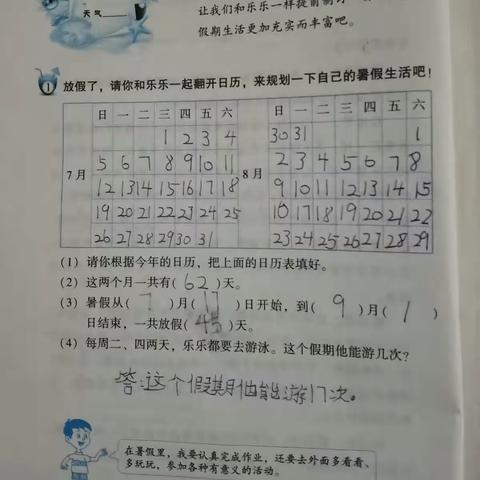 天气
让我们和乐乐一样提前制订
假期生活更加充实而丰富吧。
1 放假了,请你和乐乐一起翻开日历,来规划一下自己的暑假生活吧!
日 一 二 三 四 五 六 日 一 二 三 四 五 六
1 2 3 4 30 31 1
5 6 7 8 9 10 11 2 3 4 5 6 7 8
7月 8月
12 13 14 15 16 17 18 9 10 11 12 13 14 15
19 20 21 22 23 24 25 10 17 18 19 20 21 22
26 27 28 29 30 31 23 24 25 26 27 28 29
(1)请你根据今年的日历,把上面的日历表填好。
(2)这两个月一共有(62)天。
(3)暑假从(7)月(17)日开始,到(9)月(1)
日结束,一共放假(45)天。
(4)每周二、四两天,乐乐都要去游泳。这个假期他能游几次?
答:这个假期他能游17次。
在暑假里,我要认真完成作业,还要去外面多看看、
多玩玩,参加各种有意义的活动。